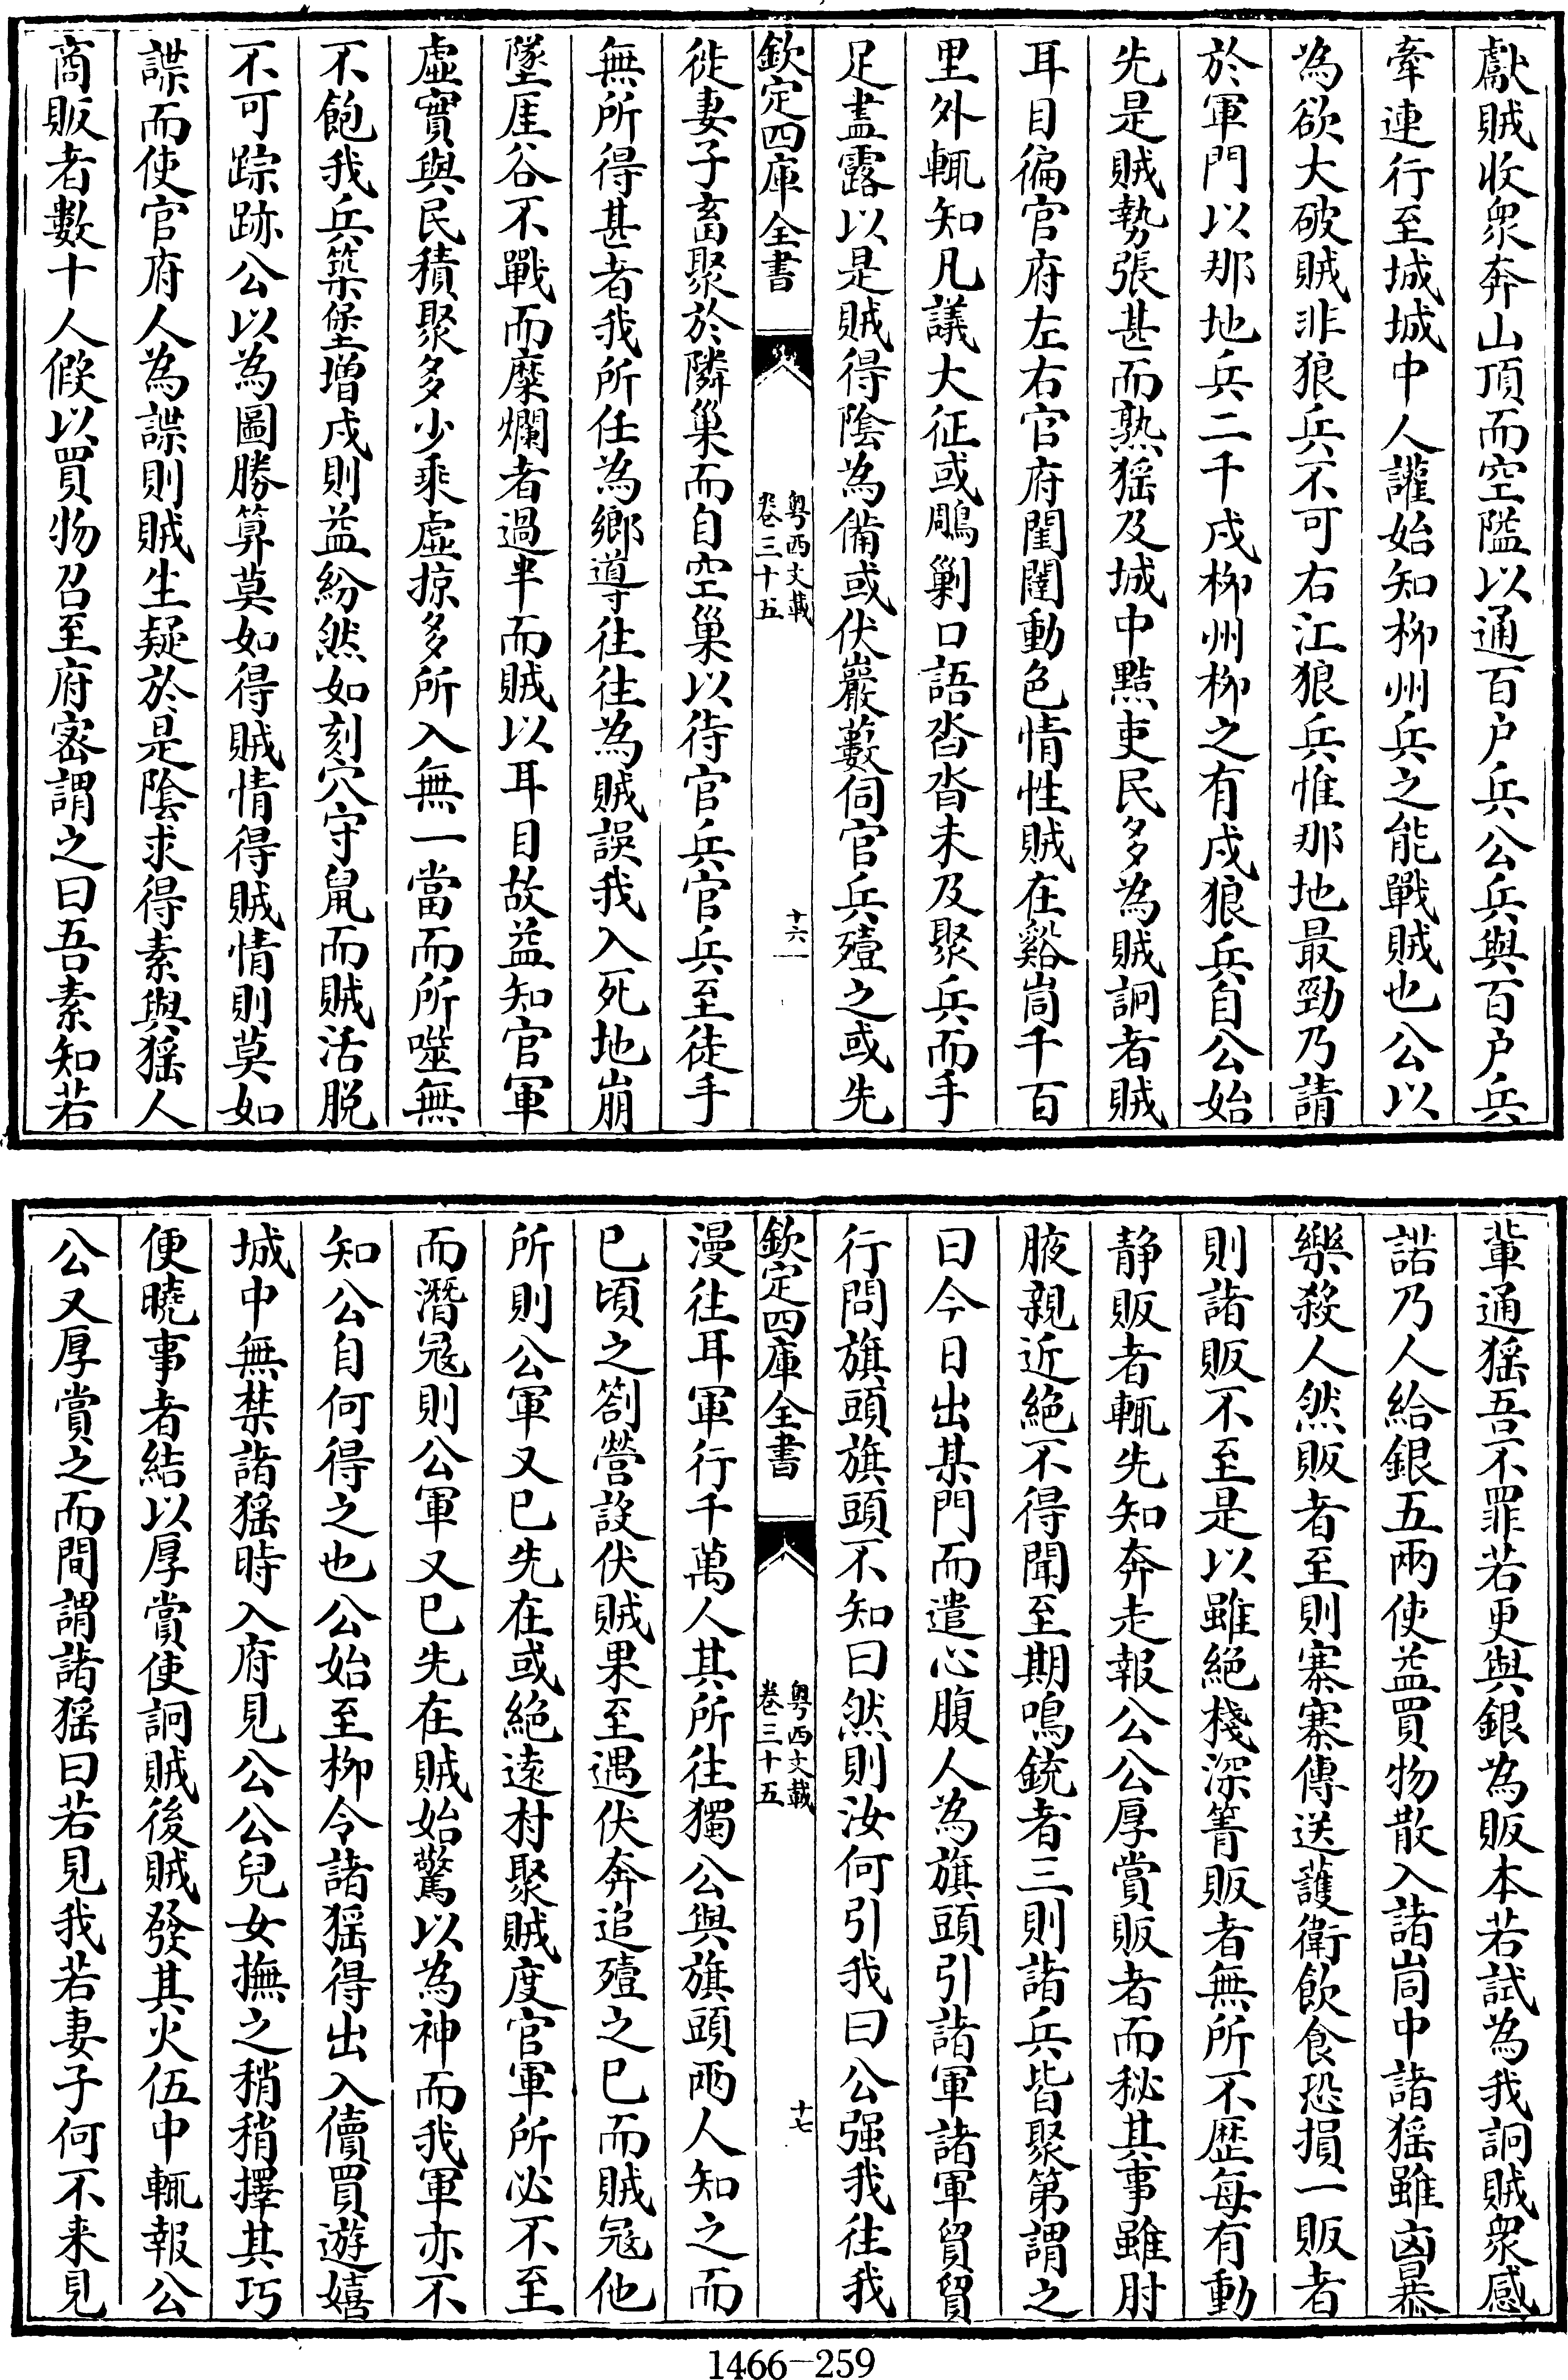 獻賊收衆奔山頂而空隘以通百户兵公兵與百户兵
牽連行至城城中人讙始知柳州兵之能戰賊也公以
為欲大破賊非狼兵不可右江狼兵惟那地最勁乃請
於軍門以那地兵二千戍柳州柳之有戍狼兵自公始
先是賊勢張甚而熟猺及城中黠吏民多為賊詗者賊
耳目徧官府左右官府閨闥動色情性賊在谿峝千百
里外輒知凡議大征或鵰剿口語沓沓未及聚兵而手
足盡露以是賊得陰為備或伏巖藪伺官兵殪之或先
欽定四庫全書
粤西文載
卷三十五
十六
徙妻子畜聚於隣巢而自空巢以待官兵官兵至徒手
無所得甚者我所任為鄉導往往為賊誤我入死地崩
墜厓谷不戰而糜爛者過半而賊以耳目故益知官軍
虛實與民積聚多少乘虛掠多所入無一當而所噬無
不飽我兵築堡增戍則益紛然如刻穴守鼠而賊活脱
不可踪跡公以為圖勝算莫如得賊情得賊情則莫如
諜而使官府人為諜則賊生疑於是陰求得素與猺人
商販者數十人假以買物召至府密謂之曰吾素知若
輩通猺吾不罪若更與銀為販本若試為我詗賊衆感
諾乃人給銀五兩使益買物散入諸峝中諸猺雖㐫暴
樂殺人然販者至則寨寨傳送護衛飲食恐損一販者
則諸販不至是以雖絶棧深箐販者無所不歷每有動
静販者輒先知奔走報公公厚賞販者而秘其事雖肘
腋親近絶不得聞至期鳴銃者三則諸兵皆聚第謂之
曰今日出某門而遣心腹人為旗頭引諸軍諸軍貿貿
行問旗頭旗頭不知曰然則汝何引我曰公强我往我
欽定四庫全書
粤西文載
卷三十五
十七
漫往耳軍行千萬人其所往獨公與旗頭兩人知之而
已頃之劄營設伏賊果至遇伏奔追殪之已而賊冦他
所則公軍又已先在或絶遠村聚賊度官軍所必不至
而潛冦則公軍又已先在賊始驚以為神而我軍亦不
知公自何得之也公始至柳令諸猺得出入儥買遊嬉
城中無禁諸猺時入府見公公兒女撫之稍稍擇其巧
便曉事者結以厚賞使詗賊後賊發其火伍中輒報公
公又厚賞之而間謂諸猺曰若見我若妻子何不来見
1466-259